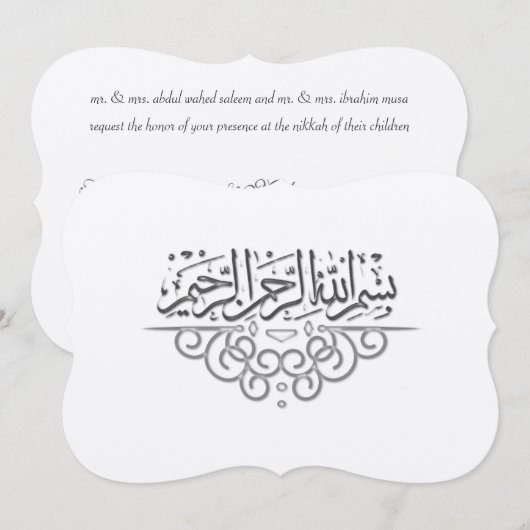 mr. & mrs. abdul wahed saleem and mr. & mrs. ibrahim musa
request the honor of your presence at the nikkah of their children
بِسْمِ اللهِ الرَّحْمٰنِ الرَّحِيْمِ